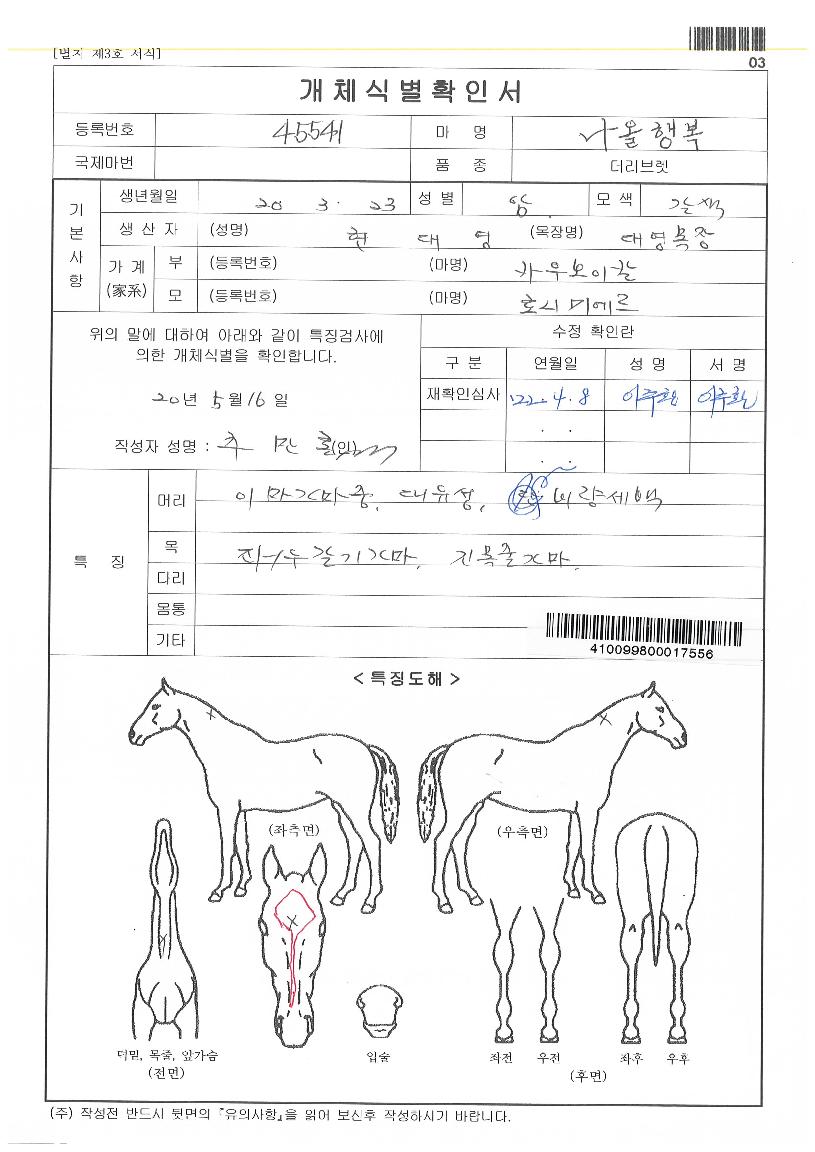 [별지 제3호 서식]
03
개체식별확인서
등록번호 45541 마 명 나올행복
국제마번 품 종 더러브렛
생년월일 20 3. 23 성별 암 모색 갈색
기본사항
생산자 (성명) 현 대 영 (목장명) 대영목장
가계 (家系) 부 (등록번호) (마명) 카우보이칼
모 (등록번호) (마명) 호시미에르
위의 말에 대하여 아래와 같이 특징검사에
의한 개체식별을 확인합니다.
20년 5월 16일
작성자 성명 : (인)
수정 확인란
구 분 연월일 성 명 서 명
재확인심사 '22. 4. 8 이주환 이주환
. .
. .
특 징
머리 이마가마중, 대유성, 비량세백
목 좌우갈기가마, 진목줄가마.
다리
몸통
기타
410099800017556
< 특징도해 >
(좌측면) (우측면)
턱밑, 목줄, 앞가슴
(전면)
입술
좌전 우전 좌후 우후
(후면)
(주) 작성전 반드시 뒷면의 『유의사항』을 읽어 보신후 작성하시기 바랍니다.